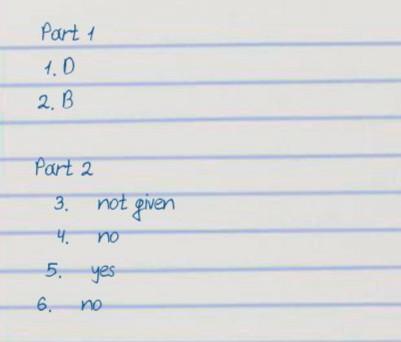 Part 1
1. D
2. B
Part 2
3. not given
4. no
5. yes
6. no